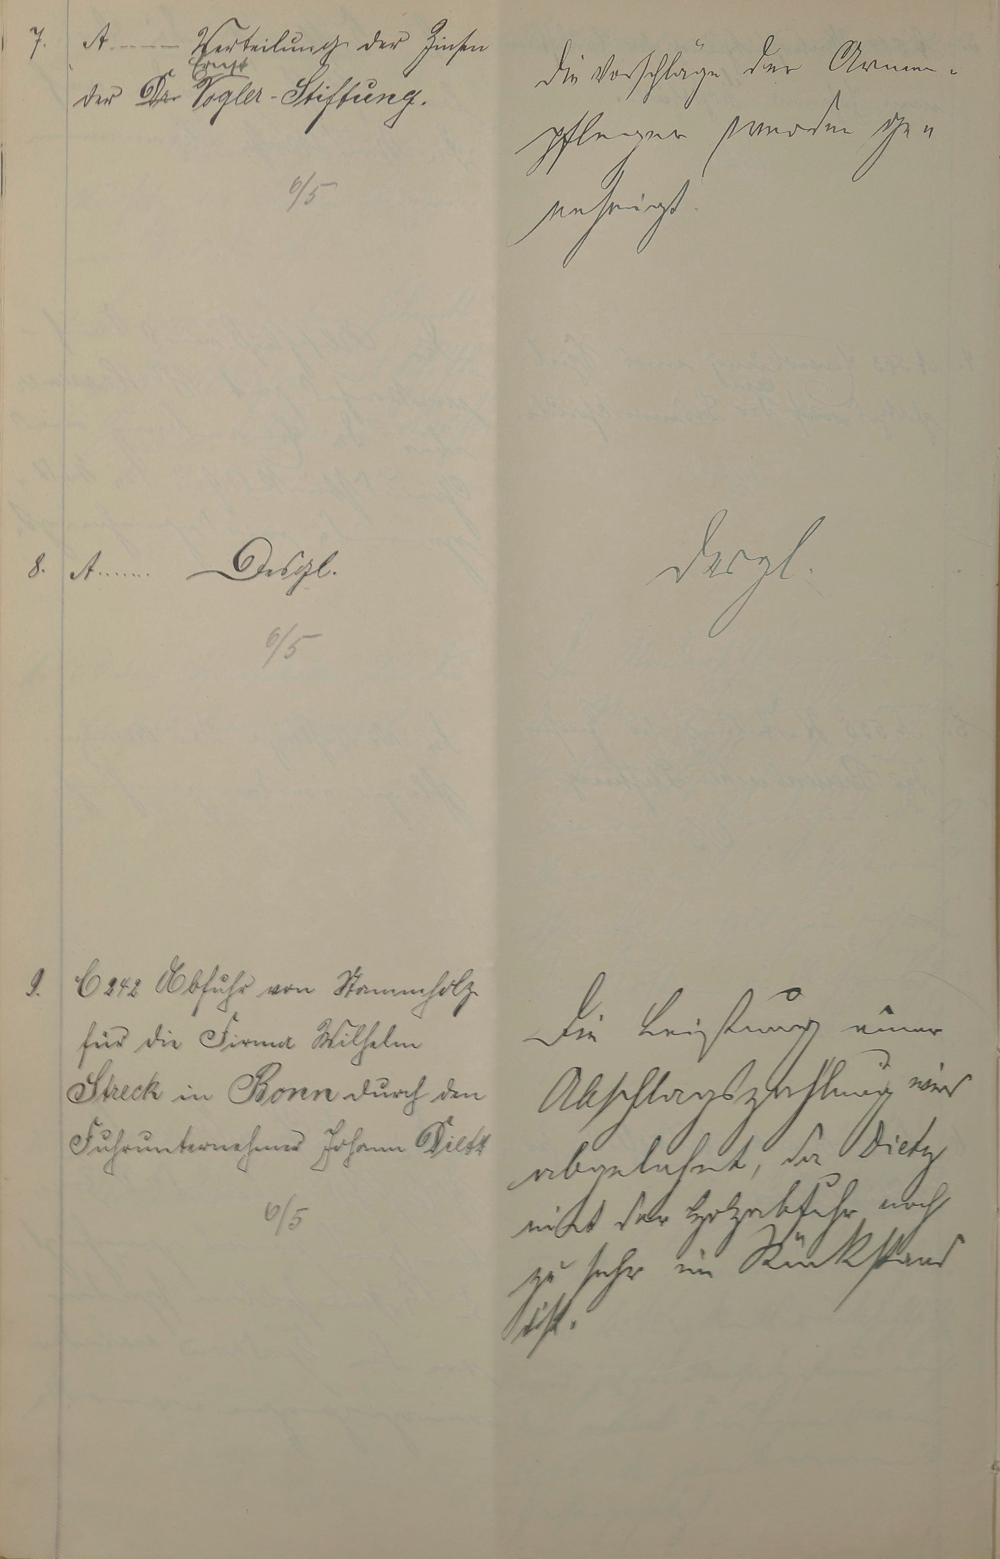 7. A....... Verteilung der Zinsen
Ernst
der Dr. Vogler-Stiftung.
6/5
Die Vorschläge der Armen-
pfleger werden ge=
nehmigt.
8. A...... Desgl.
6/5
Desgl.
9. C 242 Abfuhr von Stammholz
für die Firma Wilhelm
Streck in Bonn durch den
Fuhrunternehmer Johann Dietz
6/5
Die Leistung einer
Abschlagszahlung wird
abgelehnt, da Dietz
mit der Holzabfuhr noch
zu sehr im Rückstand
ist.